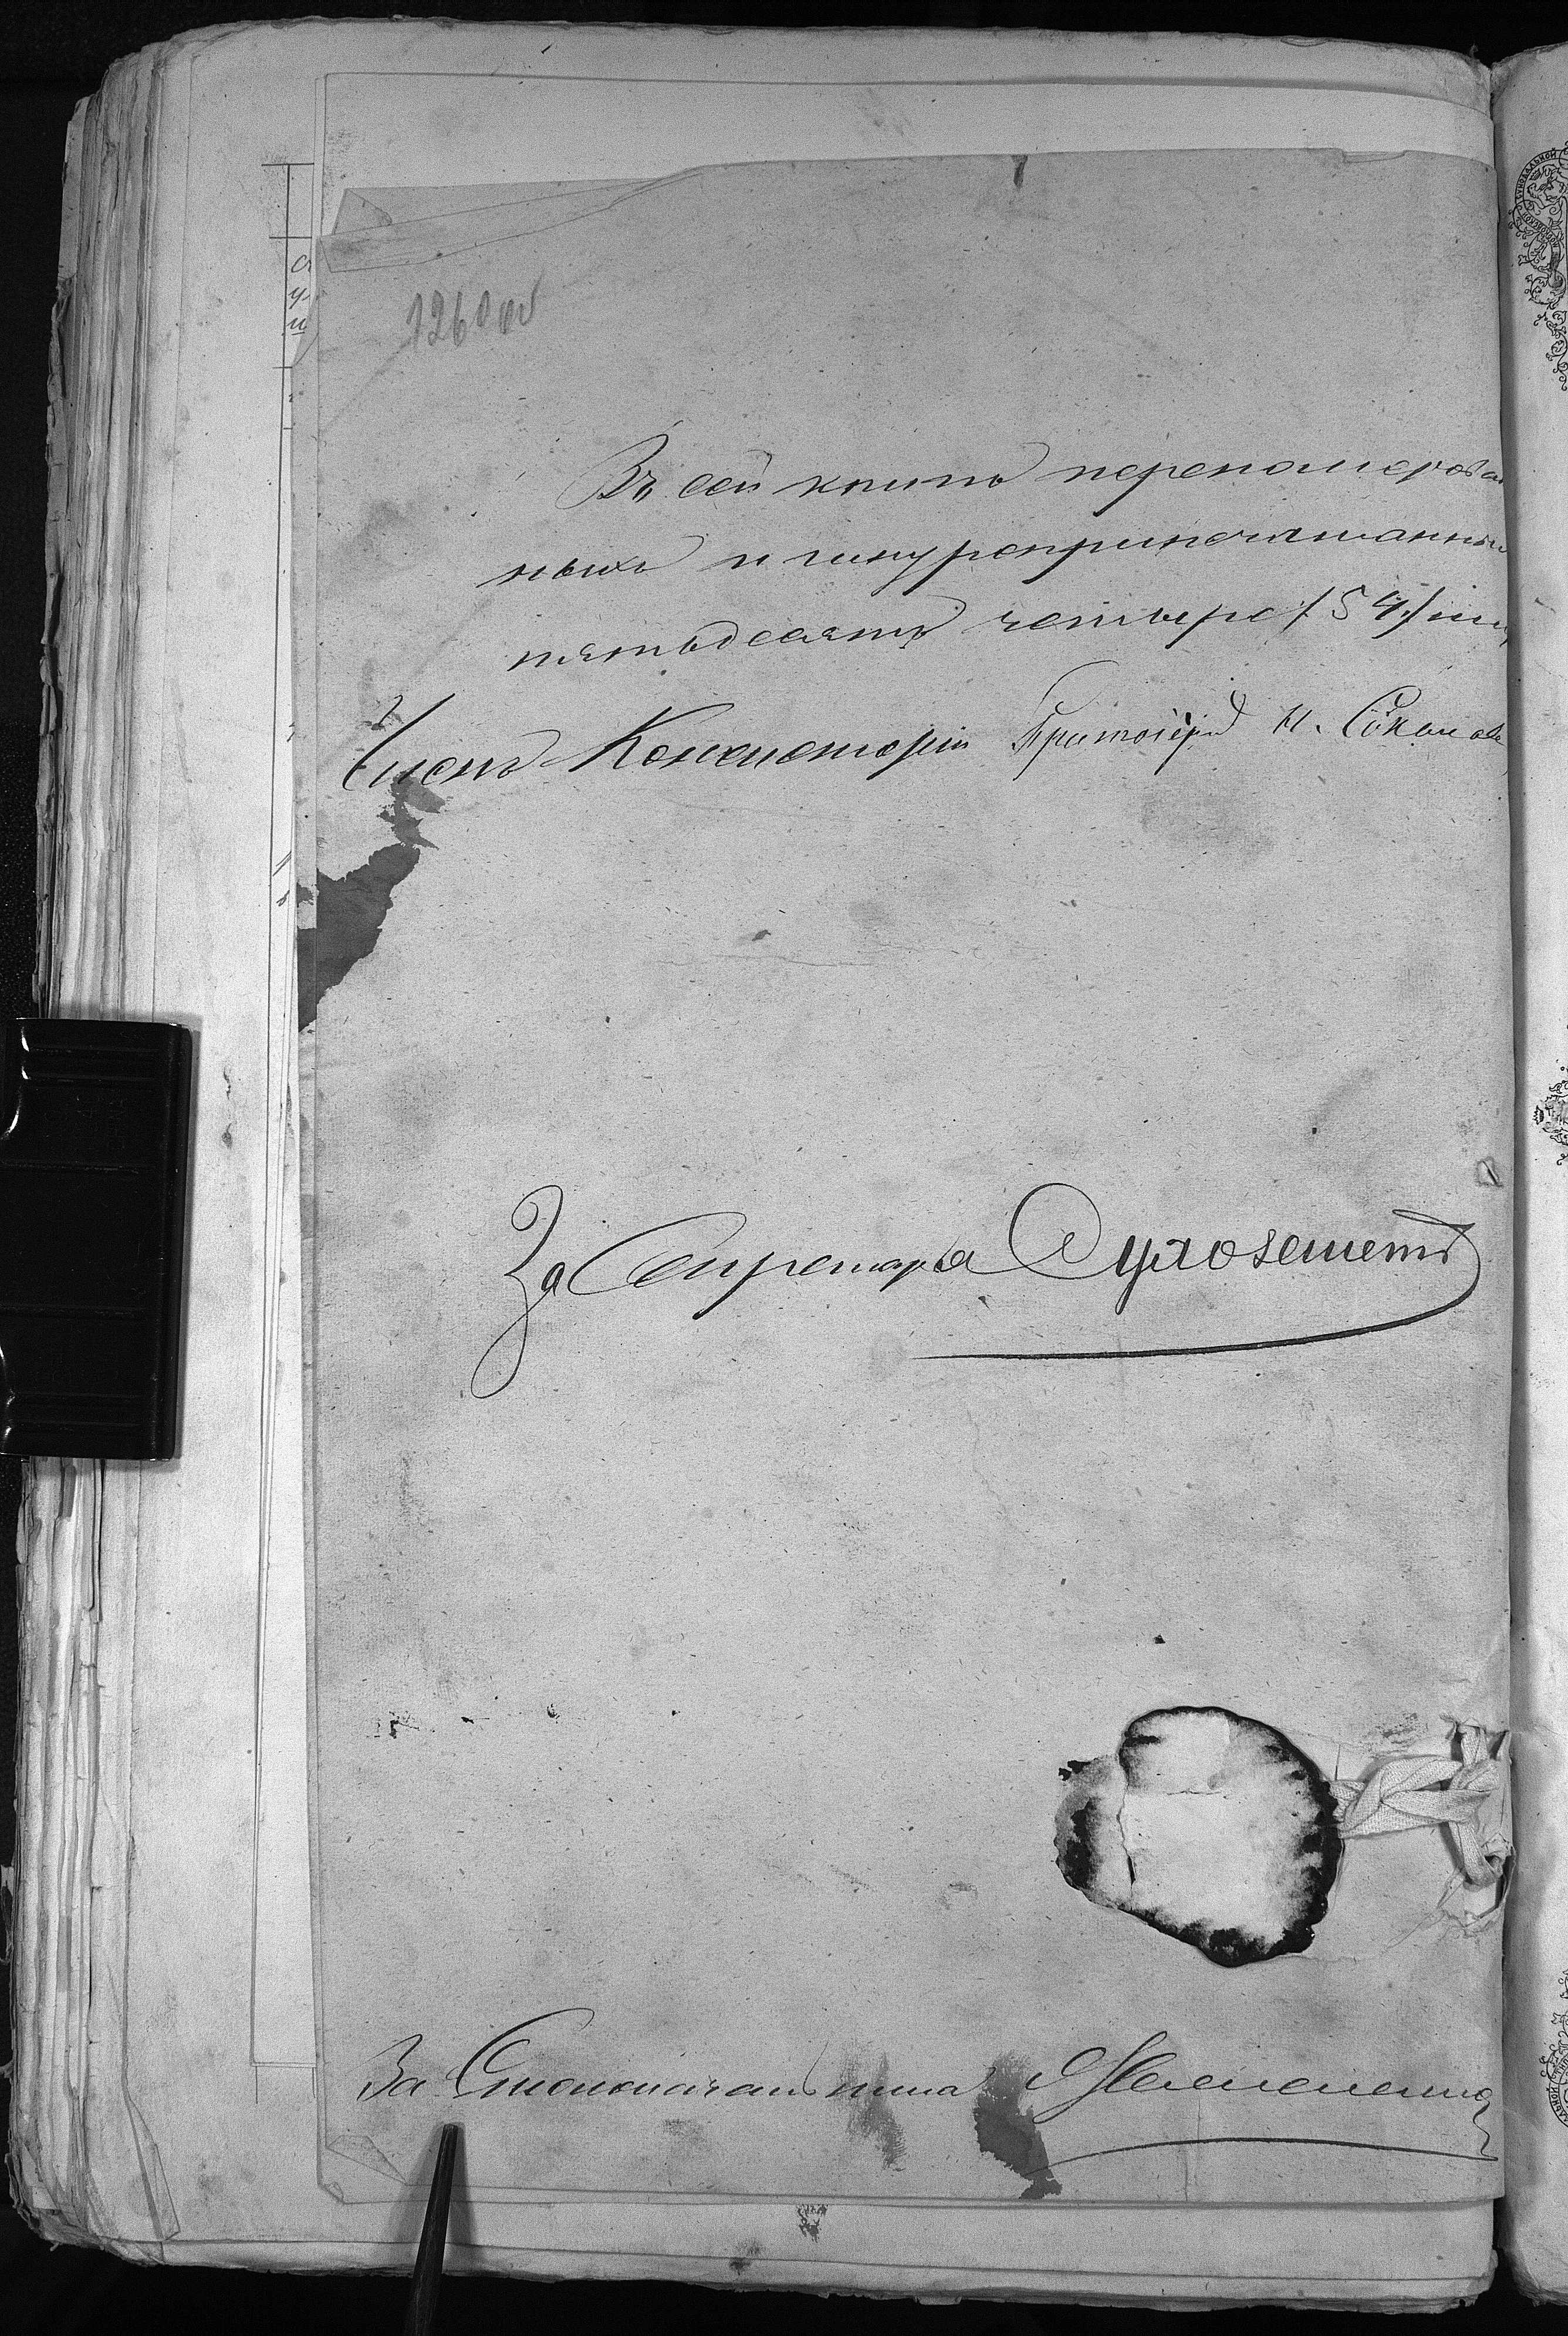 1260 об
Въ сей книгѣ перенумерован
ныхъ и шнуроприпечатанныхъ
пятьдесятъ четыре /54/
Членъ Консисторіи Протоіерей Н. Соколовъ
За Секретаря
За Столоначальника